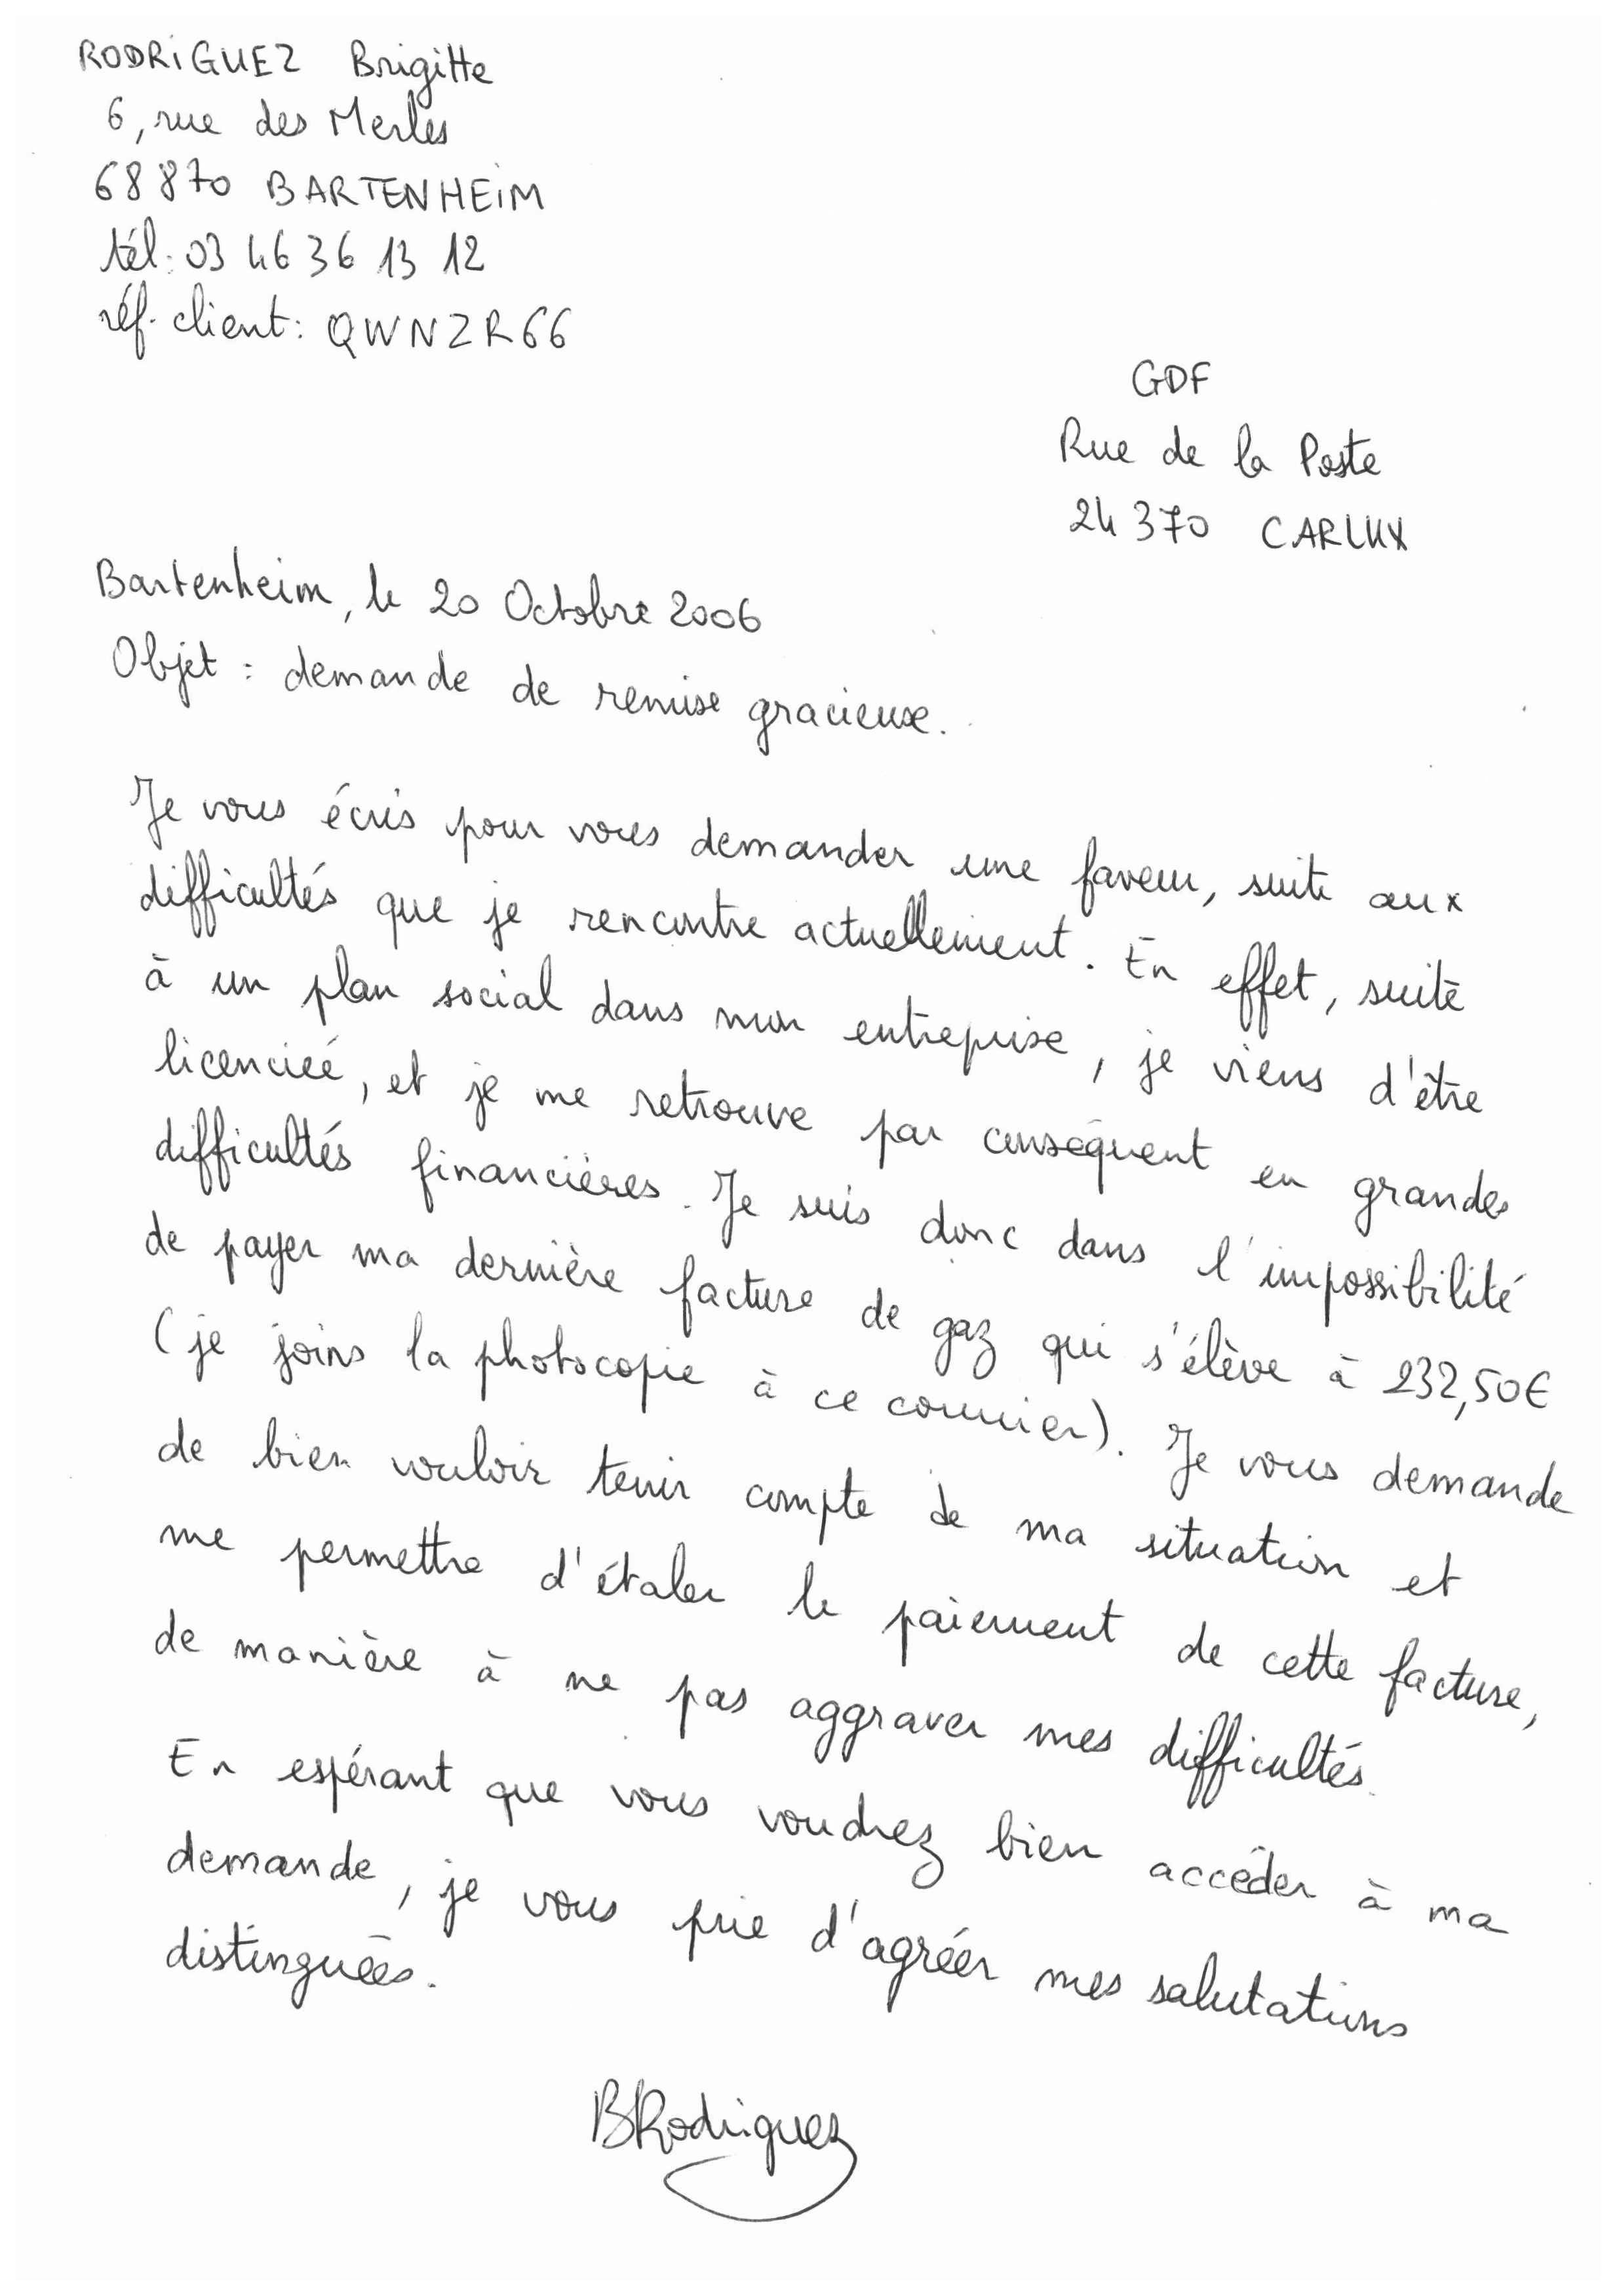 RODRIGUEZ Brigitte
6, rue des Merles
68870 BARTENHEIM
tél: 03 46 36 13 12
réf. client: QWNZR66
GDF
Rue de la Poste
24370 CARLUX
Bartenheim, le 20 Octobre 2006
Objet : demande de remise gracieuse.
Je vous écris pour vous demander une faveur, suite aux
difficultés que je rencontre actuellement. En effet, suite
à un plan social dans mon entreprise, je viens d'être
licenciée, et je me retrouve par conséquent en grandes
difficultés financières. Je suis donc dans l'impossibilité
de payer ma dernière facture de gaz qui s'élève à 232,50€
(je joins la photocopie à ce courrier). Je vous demande
de bien vouloir tenir compte de ma situation et
me permettre d'étaler le paiement de cette facture,
de manière à ne pas aggraver mes difficultés.
En espérant que vous voudrez bien accéder à ma
demande, je vous prie d'agréer mes salutations
distinguées.
BRodriguez